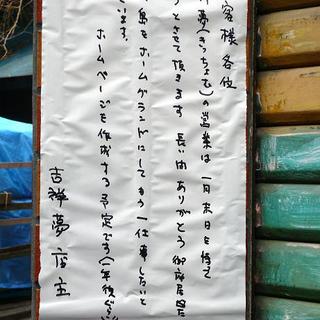 客様各位
祥夢(きっちょむ)の営業は一月末日を持って
とさせて頂きます 長い間ありがとう御座居
島をホームグランドにしてもう一仕事したいと
います。
ホームページを作成する予定です(一年後ぐらい)
吉祥夢店主